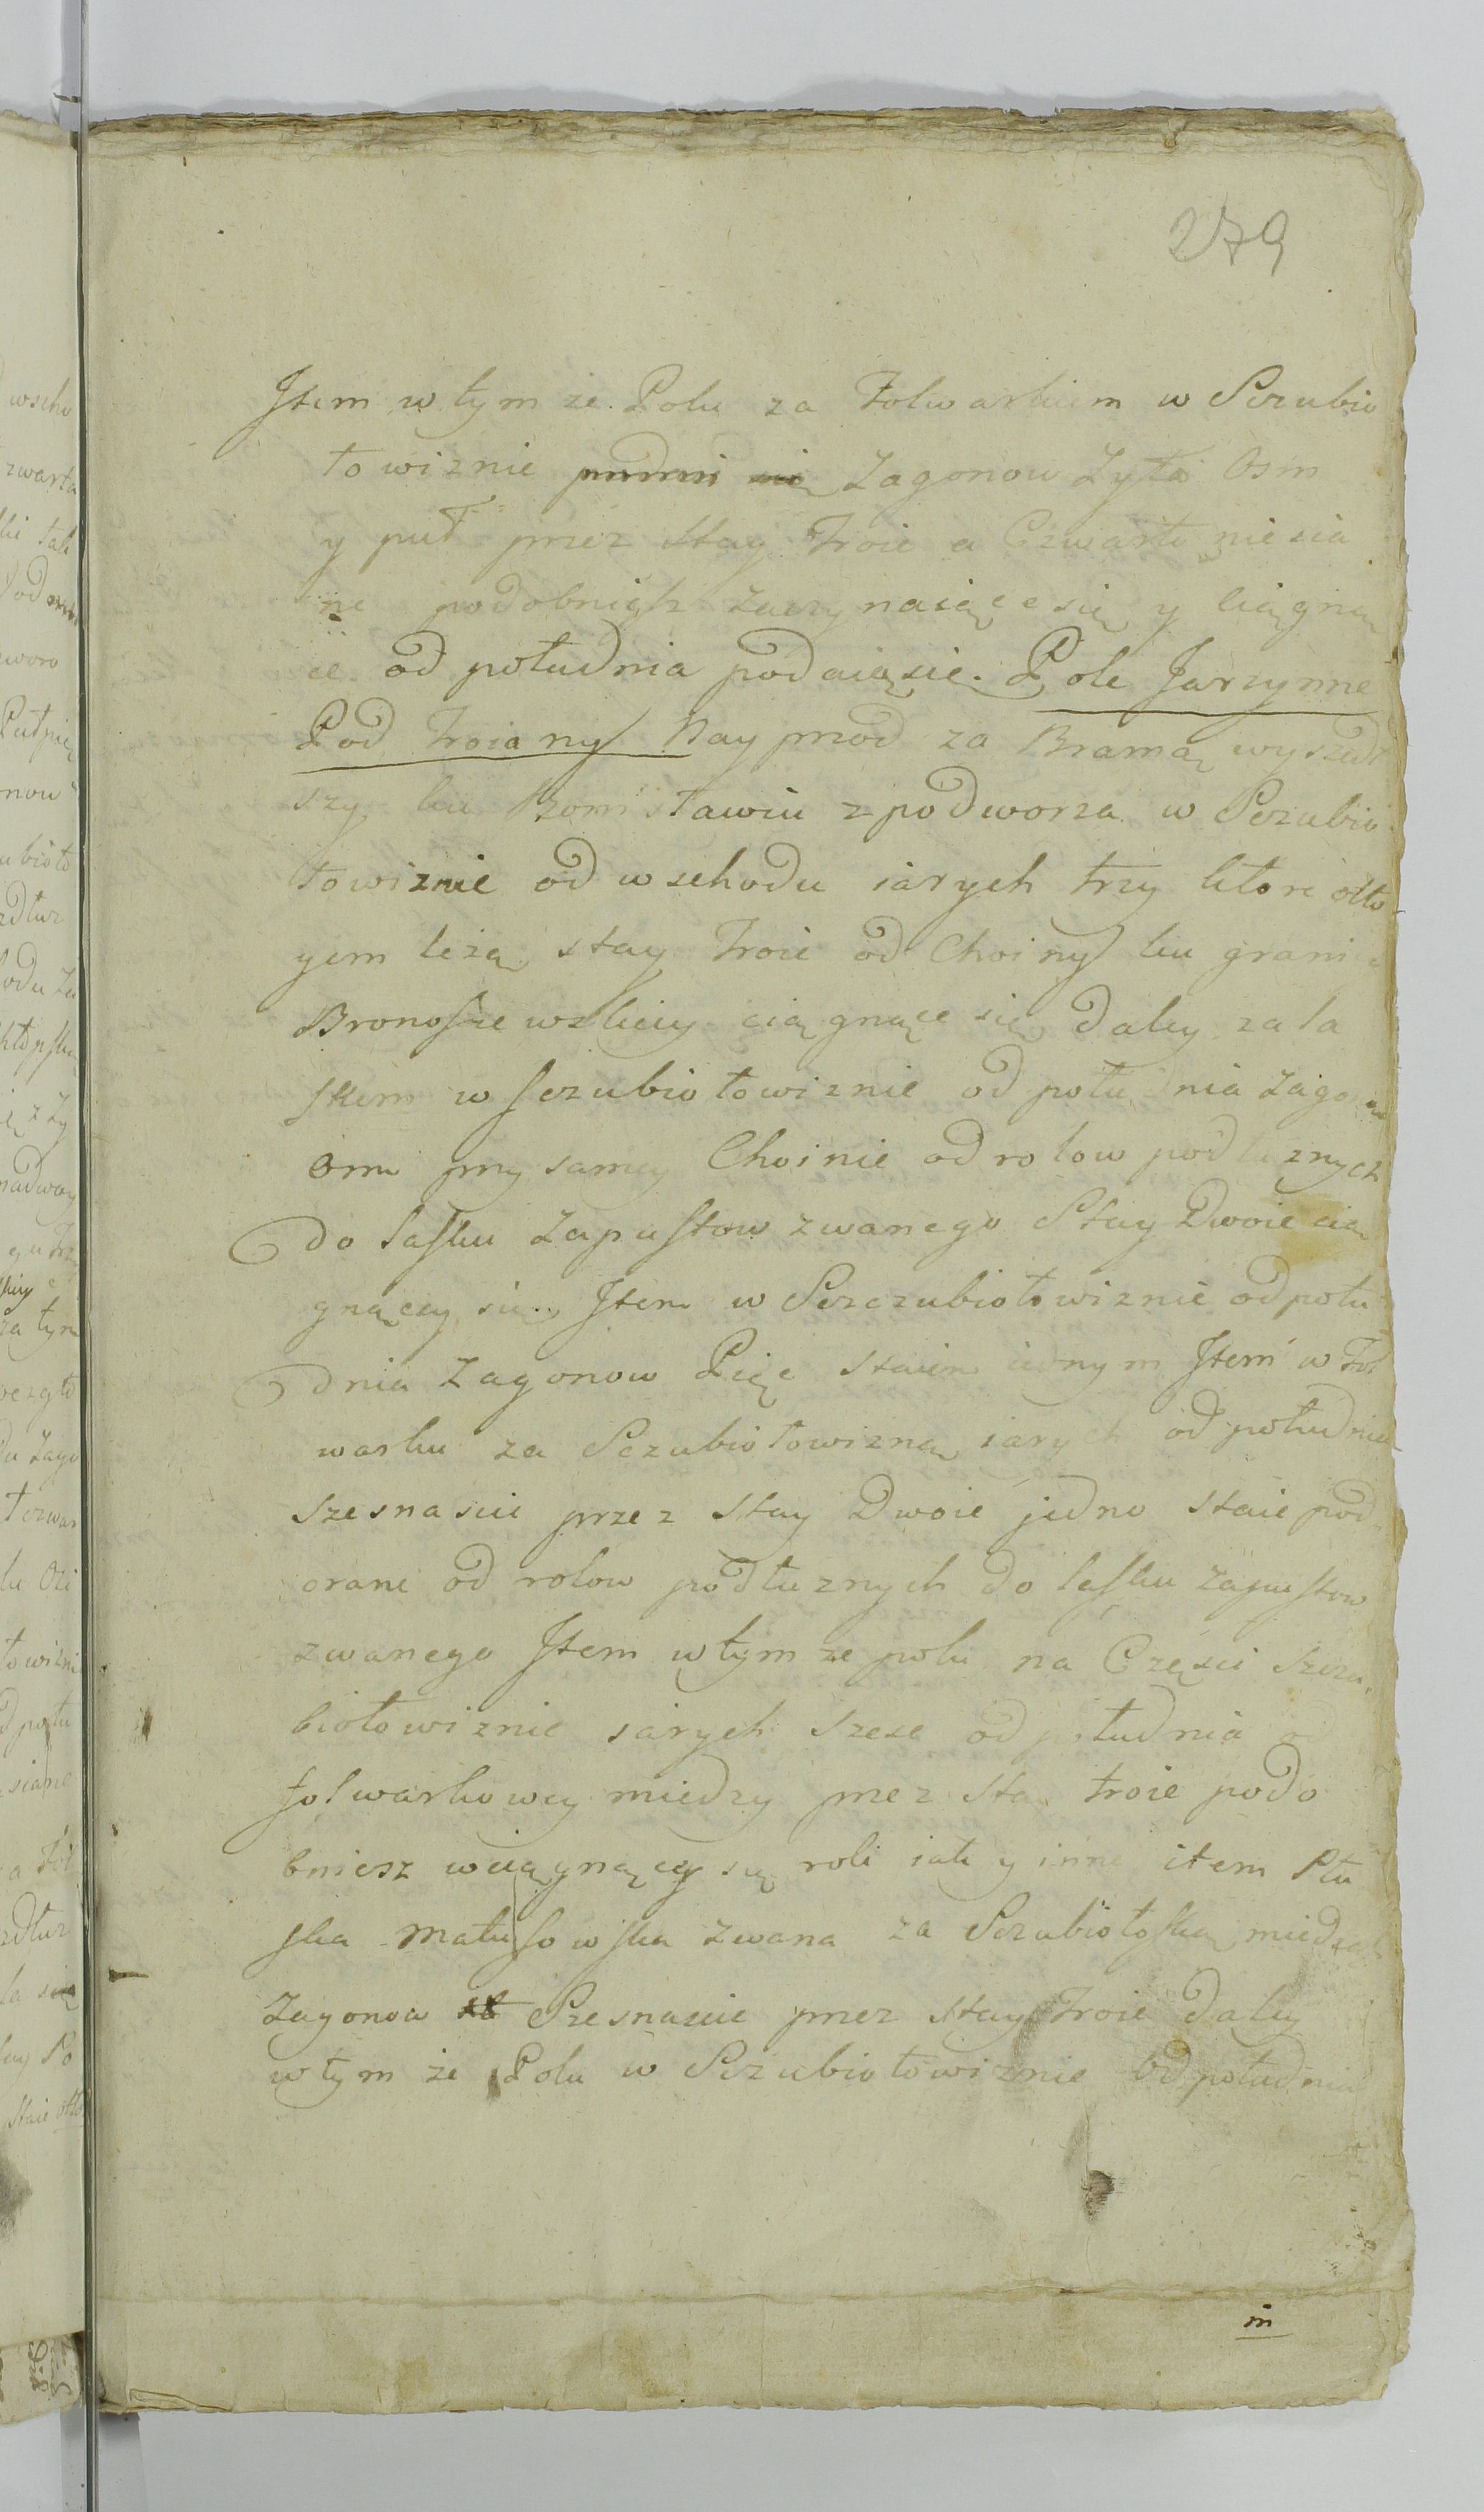 279
Jtem w tym ze Polu za Folwarkiem w Sczubio
towiznie Zagonow Zyta Osm
y puł przez Stay Troie a Czwarte niesia
ne podobniesz zaczynaiące się y ciągną
ce od południa podaią sie. Pole Jarzynne
Pod Troiany Nayprzod za Bramą wyszedł
szy ku Bomisławiu z podworza w Sczubio
towiznie od wschodu iarych trzy ktore otło
giem leżą stay Troie od Choiny ku granicy
Bronoszewskiey ciągnące się daley za la
skiem w sczubiotowiznie od południa Zagonow
Osm przy samey Choinie od rolow podłuznych
do lasku Zapustow zwanego Stay Dwoie cią
gnączy się Jtem w Sczczubiotowiznie od połu
dnia Zagonow Pięc staiem iednym Jtem w Fol
warku za Sczubiotowizną iarych od południa
szesnascie przez Stay Dwoie jedno staie pod
orane od rolow podłuznych do lasku zapustow
zwanego Jtem w tym ze polu na Częsci Sczu
biotowiznie iarych szesc od południa od
folwarkowey miedzy przez Stay troie podo
bniesz wciągnączy się roli iak y inne item Płu
ska Matusowska zwana za Sczubiotoską miedzą
Zagonow Szesnascie przez Stay Troie daley
w tym że Polu w Sczubiotowiznie od południa
m